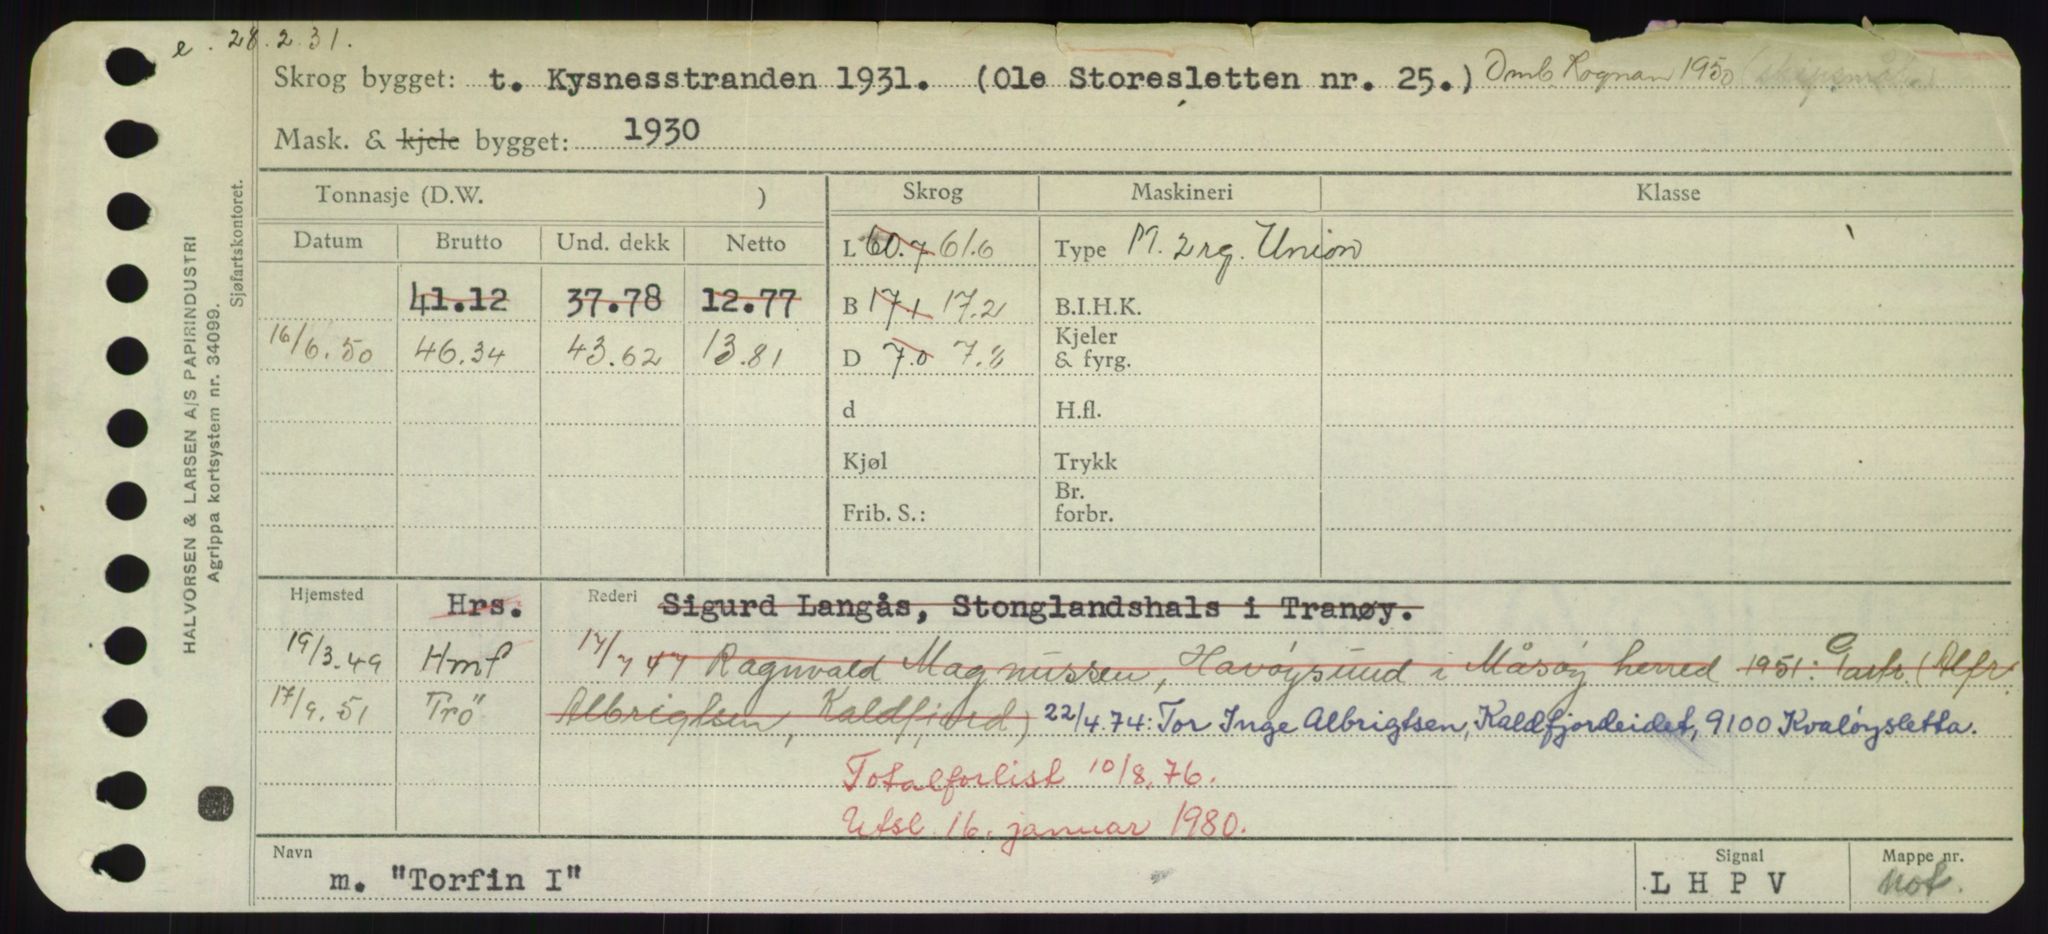 e. 28.2.31.
Skrog bygget: t. Kysnesstranden 1931. (Ole Storesletten nr. 25.) Omb. Rognan 1950
Mask. & kjele bygget: 1930
Tonnasje (D.W. ) Skrog Maskineri Klasse
Datum Brutto Und. dekk Netto L 60.7 61.6 Type M. 2 rg. Union
41.12 37.78 12.77 B 17.1 17.2 B.I.H.K.
16/6.50 46.34 43.62 13.81 D 7.0 7.8 Kjeler & fyrg.
d H.fl.
Kjøl Trykk
Frib. S.: Br. forbr.
Hjemsted Hrs. Rederi Sigurd Langås, Stonglandshals i Tranøy.
19/3.49 Hmf 17/7 47 Ragnvald Magnussen, Havöysund i Måsöy herred 1951: Partr. (Alfr.
17/9.51 Trö Albrigtsen, Kaldfjord) 22/4.74: Tor Inge Albrigtsen, Kaldfjordeidet, 9100 Kvalöysletta.
Totalforlist 10/8.76.
Utsl. 16. januar 1980.
Navn Signal Mappe nr.
m. "Torfin I" L H P V not.
HALVORSEN & LARSEN A/S PAPIRINDUSTRI
Agrippa kortsystem nr. 34099.
Sjøfartskontoret.